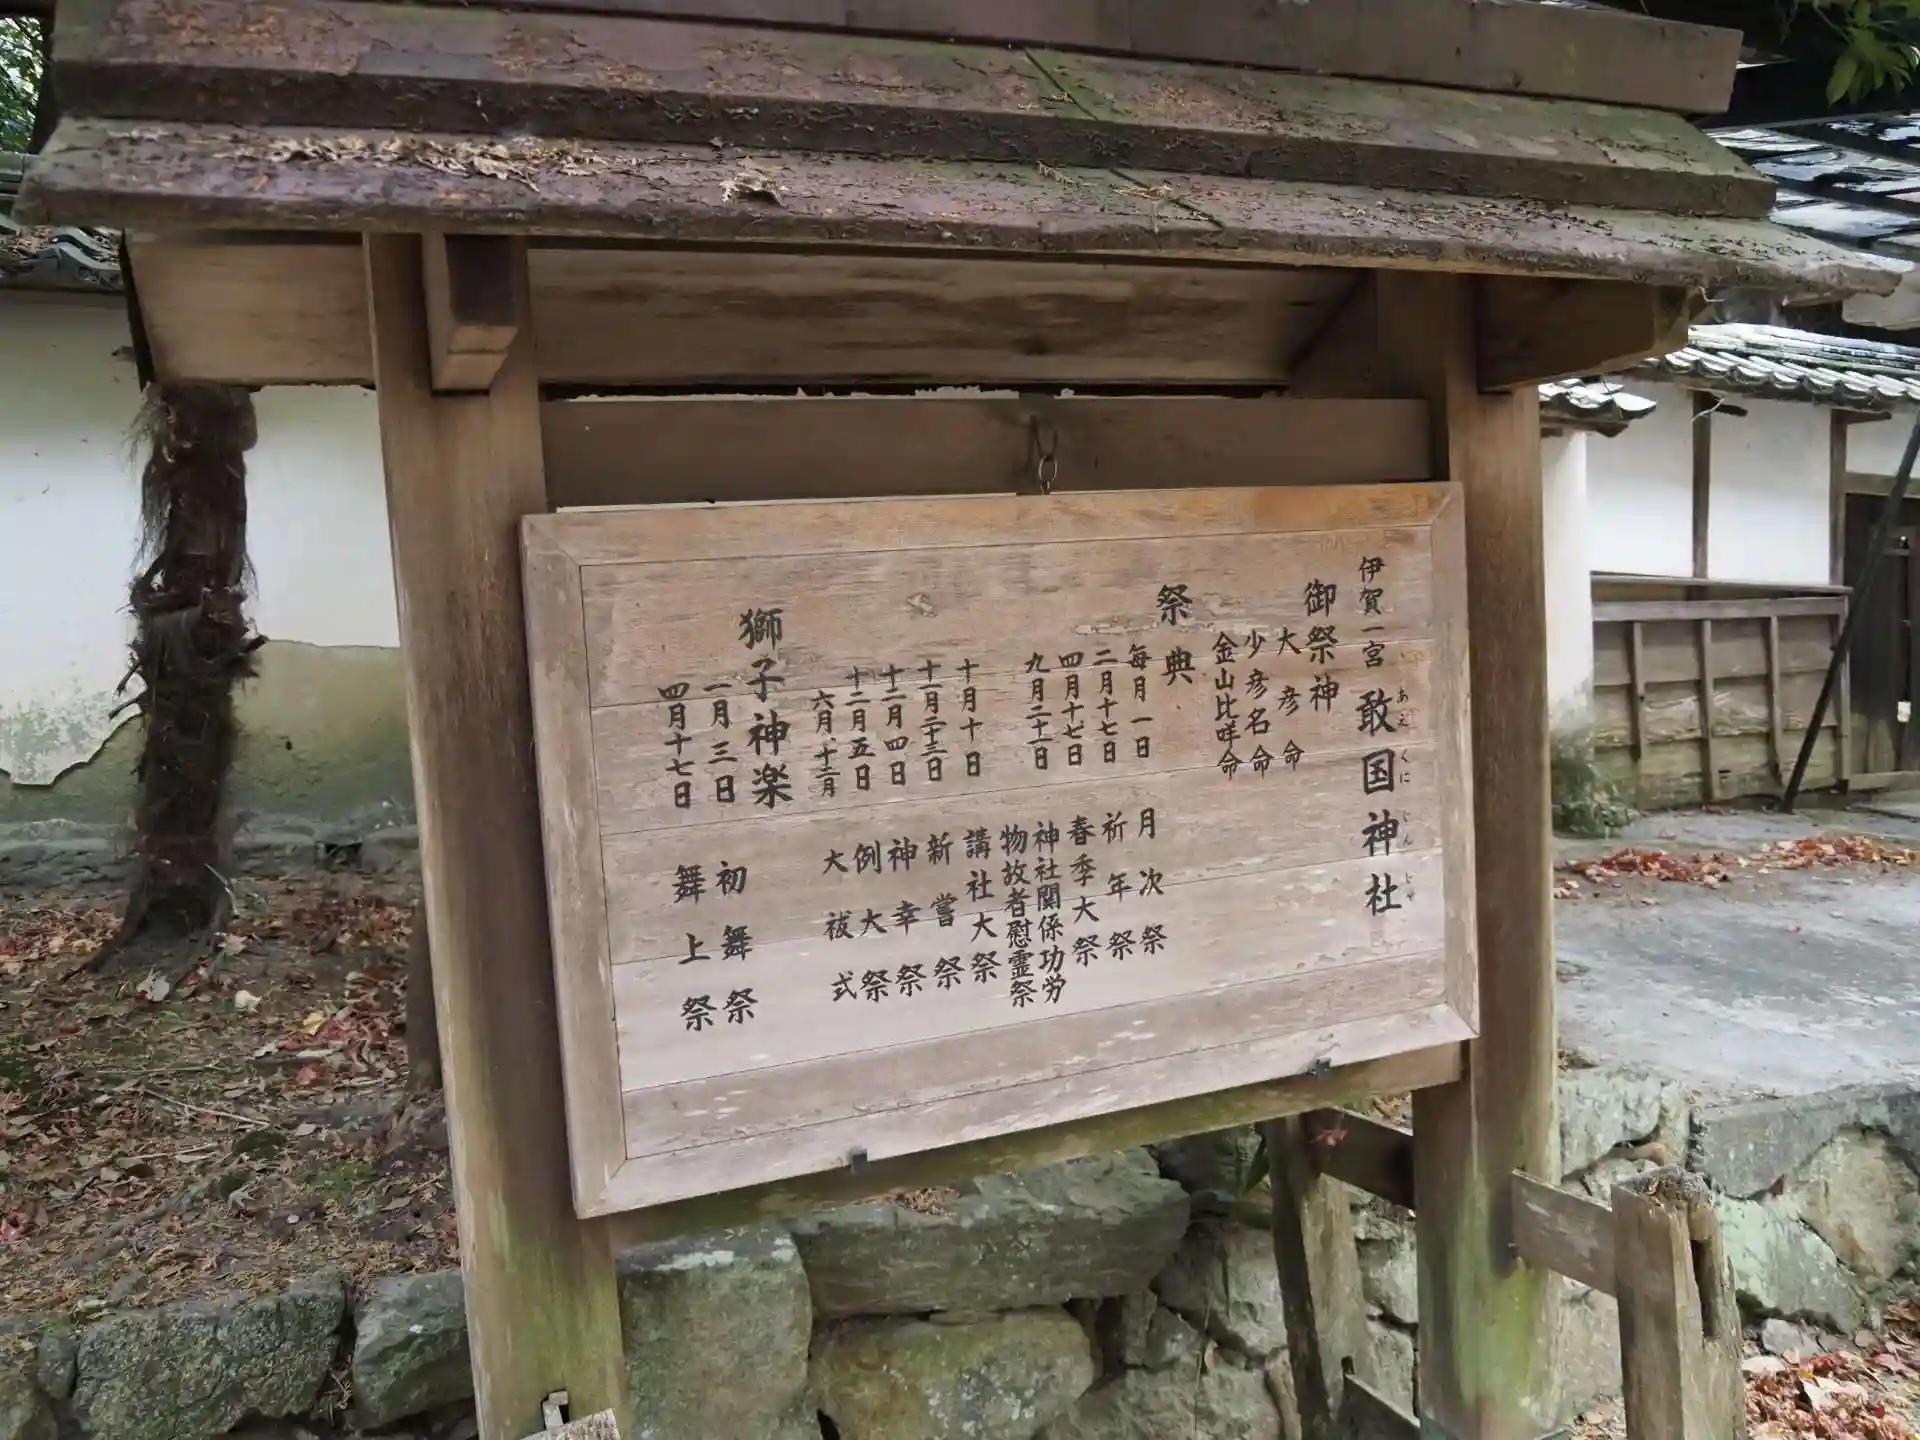 伊賀一宮 敢国神社
あえ くに じん じゃ
御祭神
大彦命
少彦名命
金山比咩命
祭典
毎月一日 月次祭
二月十七日 祈年祭
四月十七日 春季大祭
九月二十一日 神社関係功労
物故者慰霊祭
十月十日 講社大祭
十一月二十三日 新嘗祭
十二月四日 神幸祭
十二月五日 例大祭
六月、十二月 大祓式
獅子神楽
一月三日 初舞祭
四月十七日 舞上祭